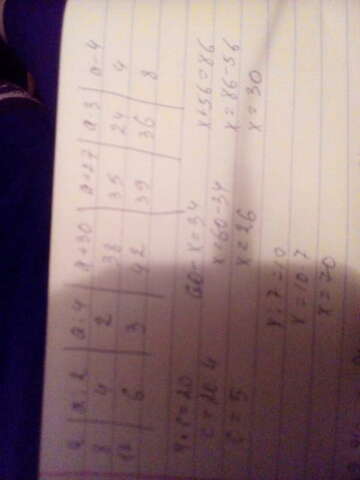 a | a:2 | a:4 | a+30 | a+27 | a·3 | a-4
8 | 4 | 2 | 38 | 35 | 24 | 4
12 | 6 | 3 | 42 | 39 | 36 | 8
4·c=20 60-x=34 x+56=86
c=20:4 x=60-34 x=86-56
c=5 x=26 x=30
x:7=10
x=10·7
x=70